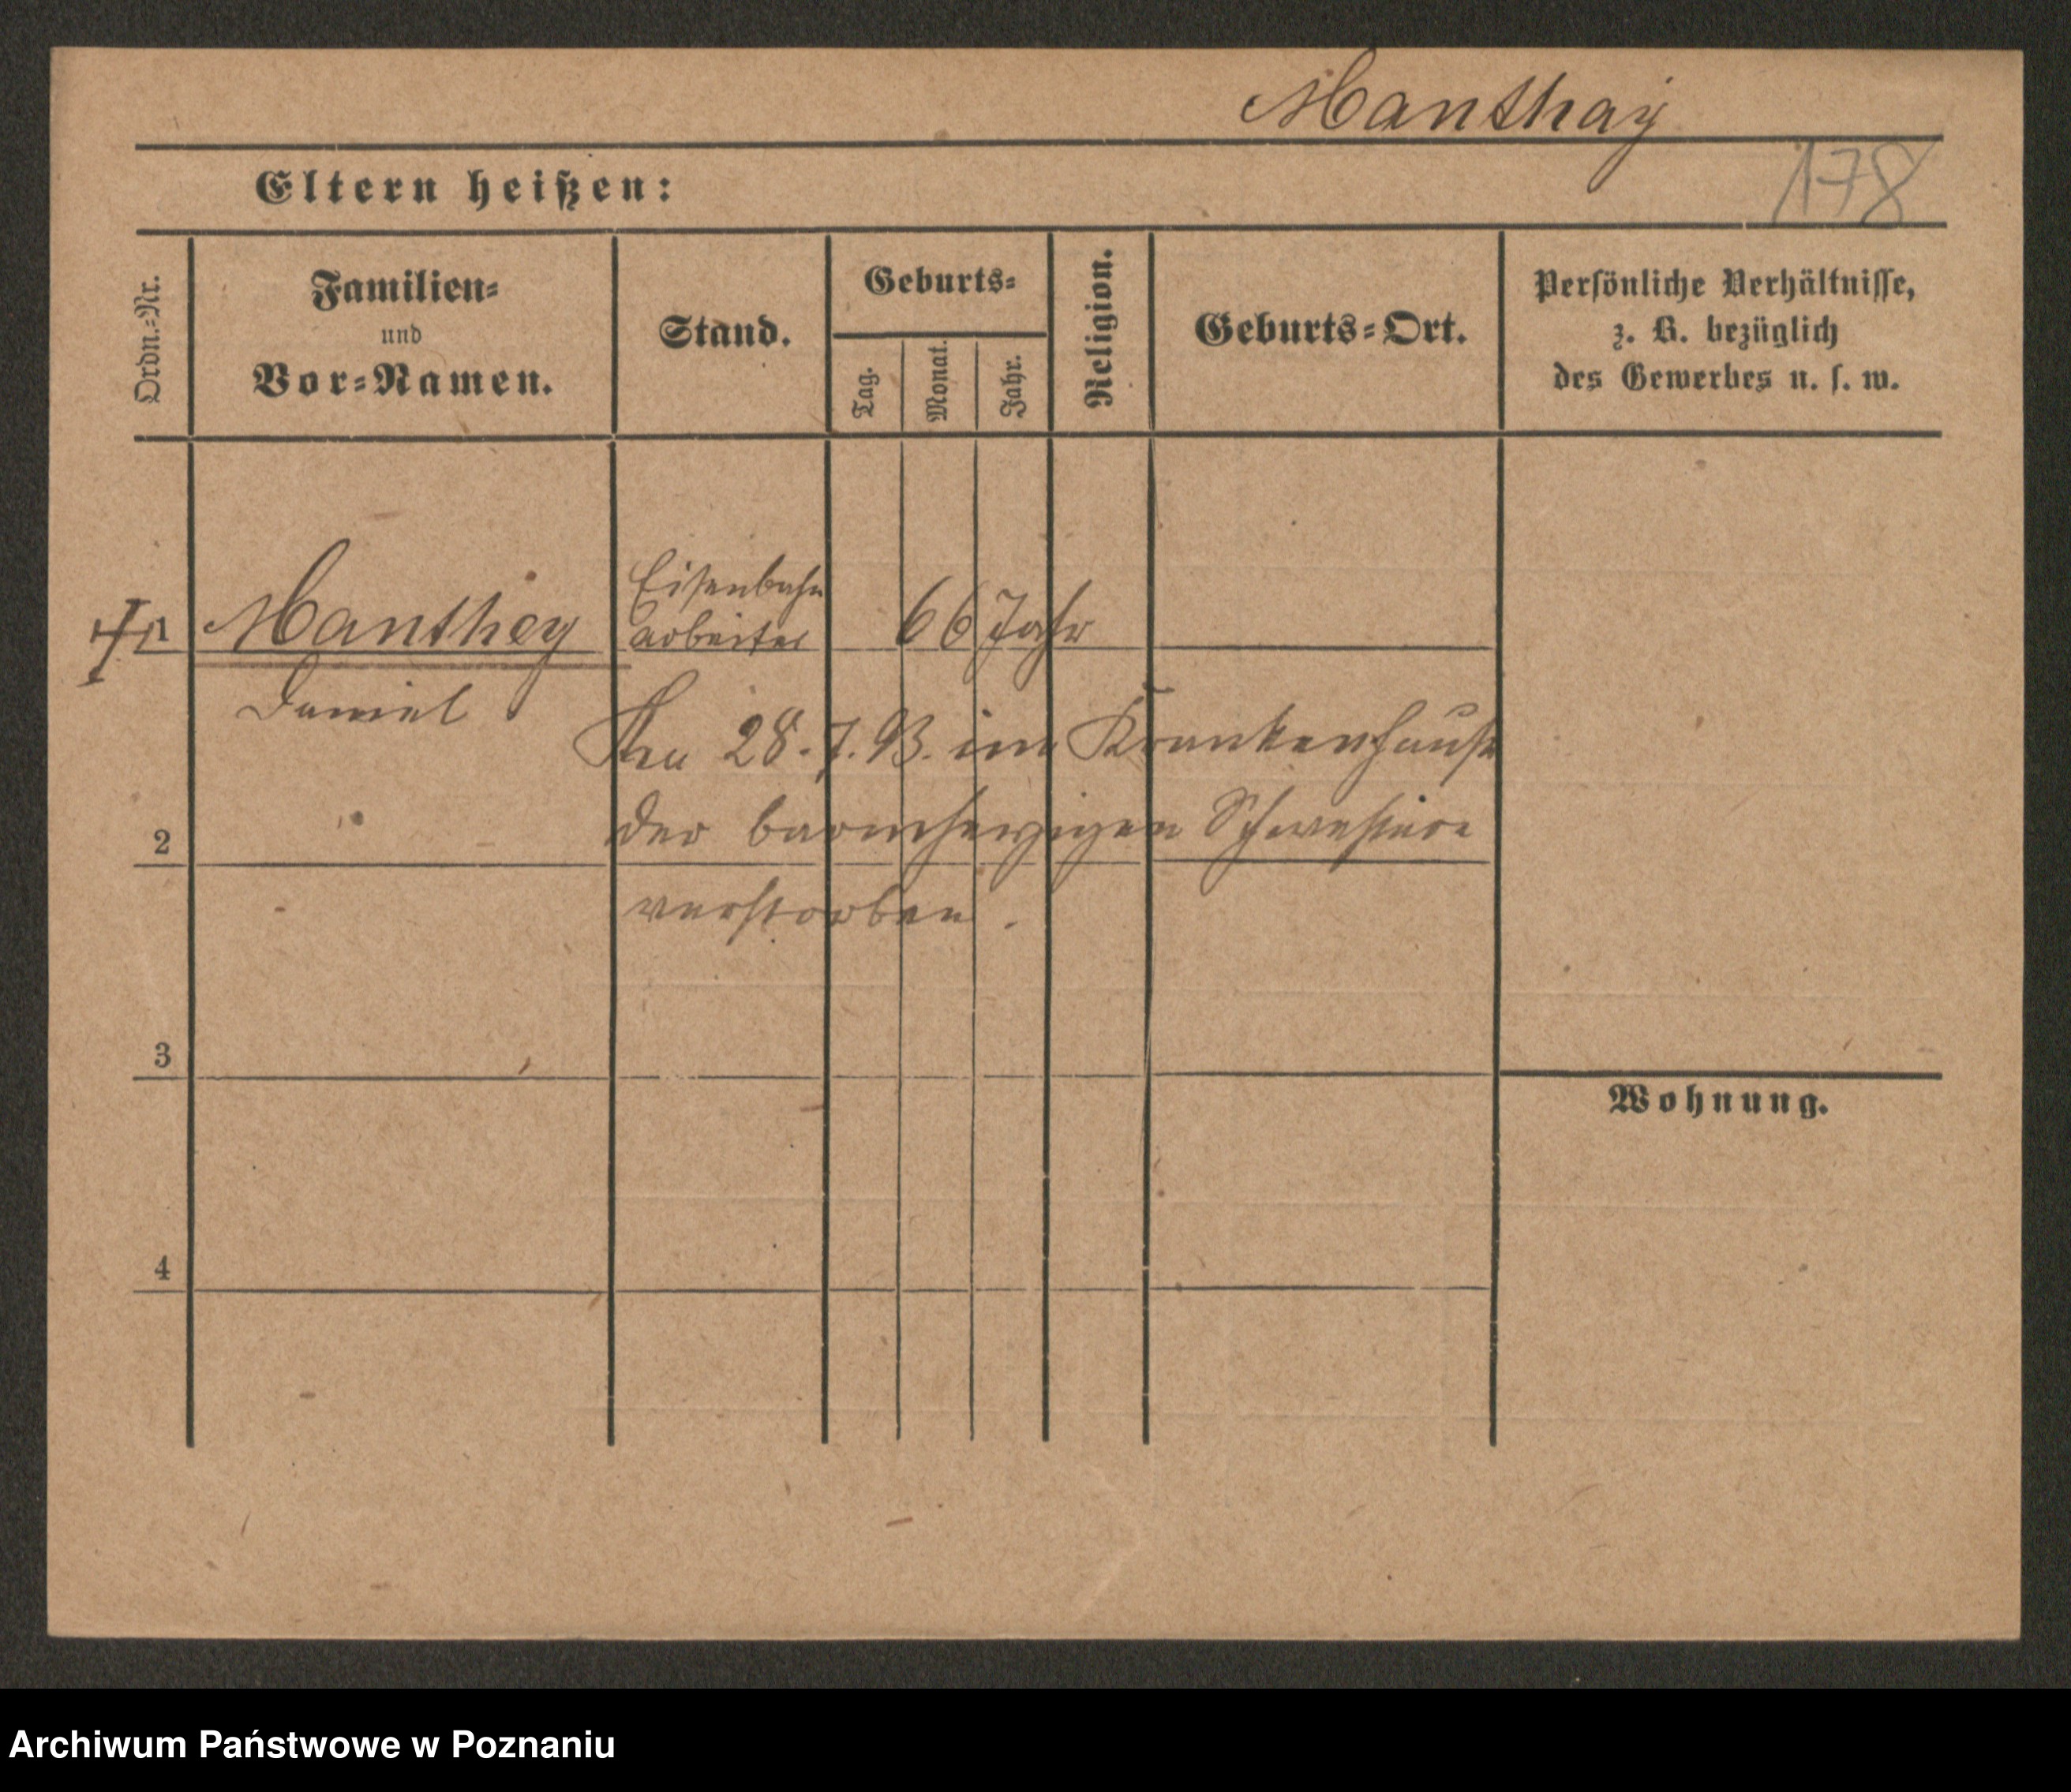 Manthaÿ
178
Eltern heißen:
Ordn.-Nr.
Familien-
und
Vor-Namen.
Stand.
Geburts-
Tag.
Monat.
Jahr.
Religion.
Geburts-Ort.
Persönliche Verhältnisse,
z. B. bezüglich
des Gewerbes u. s. w.
1
Manthey
Daniel
Eisenbahn
arbeiter
66 Jahr
28.7.93. im Krankenhause
der barmherzigen Schwestern
verstorben.
2
3
4
Wohnung.
Archiwum Państwowe w Poznaniu